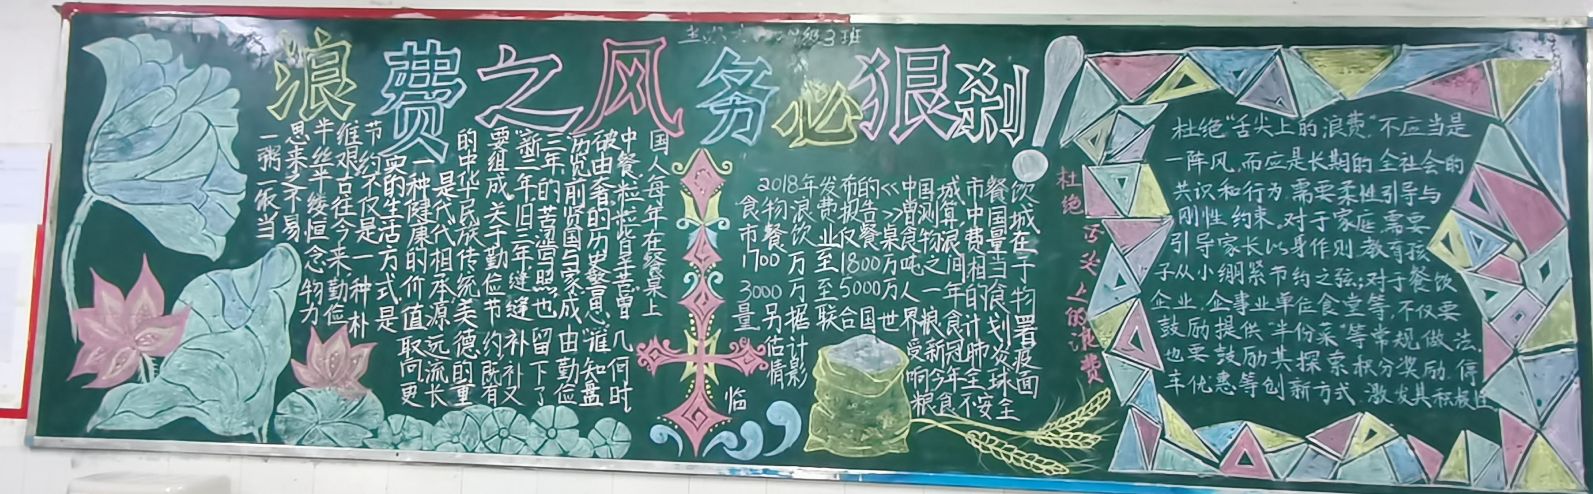 级3班
浪费之风务必狠刹！
一粥一饭当
思来之不易
半丝半缕恒念物力
维艰古往今来勤俭
节约不仅是一种朴
实的生活方式是
一种健康的价值取向更
是代代相承源远流长
的中华民族传统美德的重
要组成关于勤俭节约既有
"新三年旧三年缝缝补补又
三年"的苦涩照也留下了
历览前贤国与家成由勤俭
破由奢的历史警息"谁知盘
中餐粒粒皆是苦曾几何时
国人每年在餐桌上
2018年发布的<<中国城市餐饮
食物浪费报告>>曾测算中国城
市餐饮业仅餐桌食物浪费量在
1700万至1800万吨之间相当于
3000万至5000万人一年的食物
量另据联合国世界粮食计划署
估计受新冠肺炎疫
情影响今年全球面
临粮食不安全
杜绝舌尖上的浪费
杜绝"舌尖上的浪费"不应当是
一阵风,而应是长期的全社会的
共识和行为,需要柔性引导与
刚性约束。对于家庭,需要
引导家长以身作则,教育孩
子从小绷紧节约之弦;对于餐饮
企业,企事业单位食堂等,不仅要
鼓励提供"半份菜"等常规做法,
也要鼓励其探索积分奖励,停
车优惠等创新方式,激发其积极性